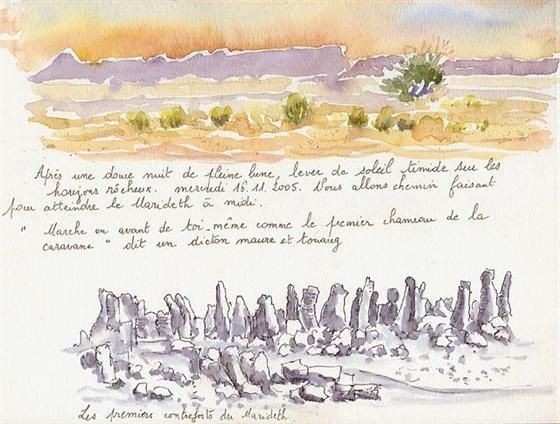 Après une douce nuit de pleine lune, lever de soleil timide sur les
horizons rocheux. mercredi 16.11.2005. Nous allons chemin faisant
pour atteindre le Marideth à midi.
" Marche en avant de toi-même comme le premier chameau de la
caravane " dit un dicton maure et touareg
Les premiers contreforts du Marideth.